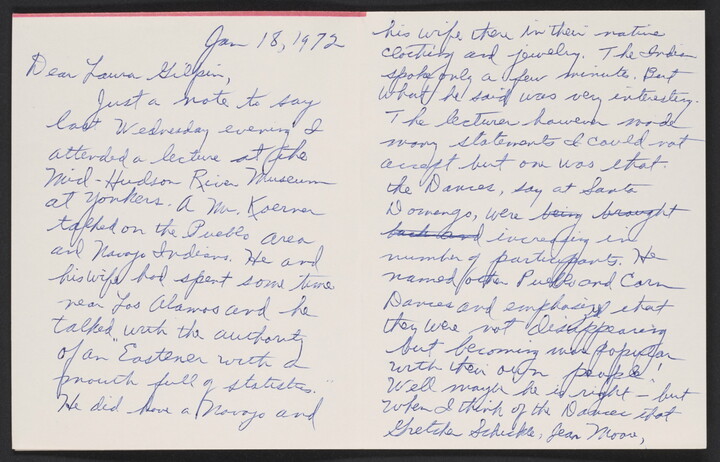 Jan 18, 1972
Dear Laura Gilpin,
Just a note to say
last Wednesday evening I
attended a lecture at the
Mid-Hudson River Museum
at Yonkers. A Mr. Koerner
talked on the Pueblo area
and Navajo Indians. He and
his wife had spent some time
near Los Alamos and he
talked with the authority
of an "Easterner with a
mouth full of statistics."
He did have a Navajo and
his wife there in their native
clothing and jewelry. The Indian
spoke only a few minutes. But
what he said was very interesting.
The lecturer however made
many statements I could not
accept but one was that
the Dances, say at Santo
Domingo, were being brought
back and increasing in
number of participants. He
named other Pueblo and Corn
Dances and emphasized that
they were not disappearing
but becoming more popular
with their own people!
Well maybe he is right - but
when I think of the Dances that
Gretchen Schickle, Jean Moore,